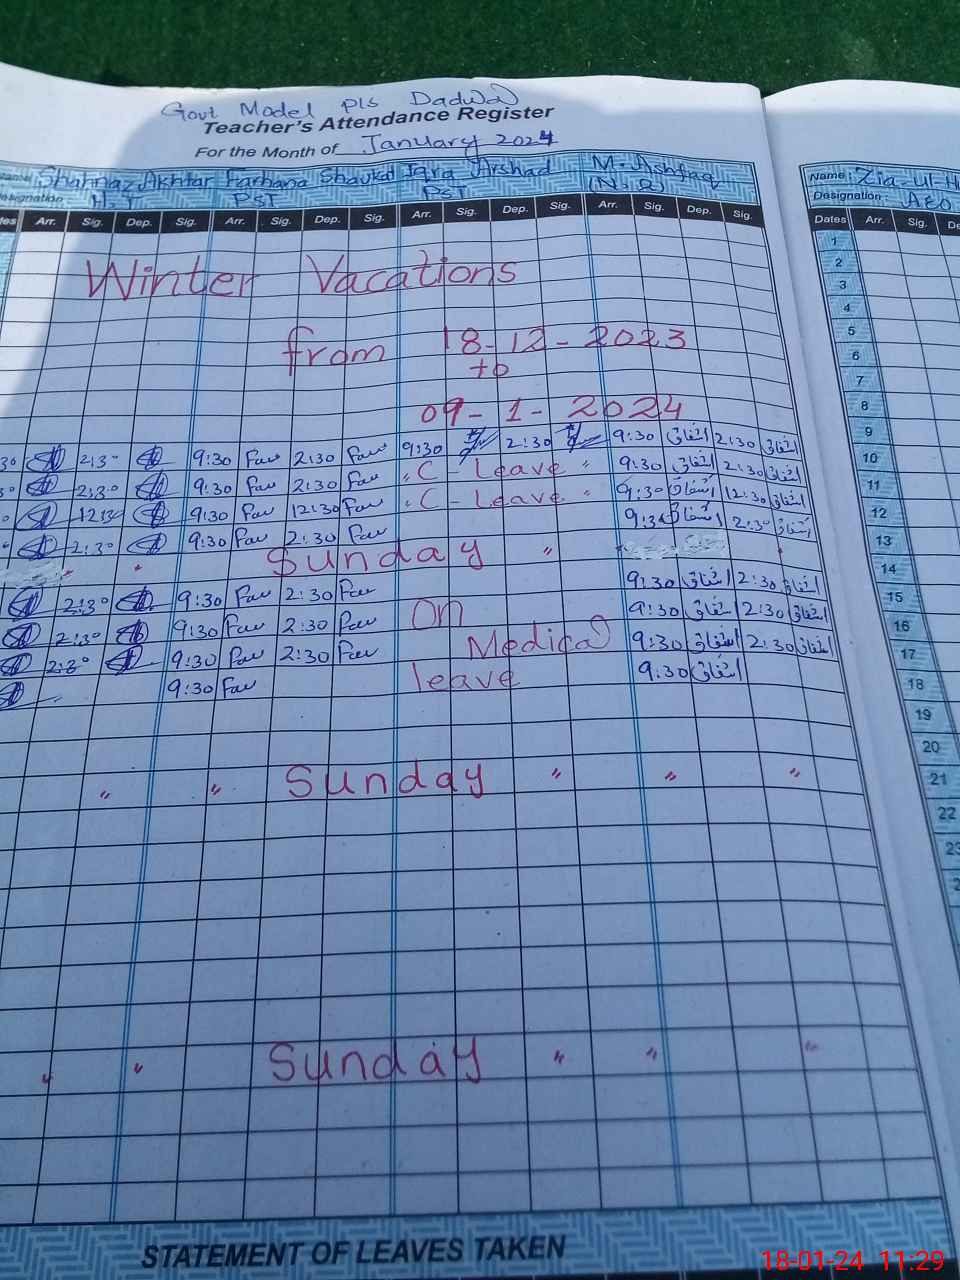 Govt Model P/S Dadwal
Teacher's Attendance Register
For the Month of January 2024
Shahnaz Akhtar Farhana Shaukat Iqra Arshad M. Ashfaq Name: Zia-ul-H
Designation H.T PST PST (N.Q) Designation: AEO
Arr. Sig. Dep. Sig. Arr. Sig. Dep. Sig. Arr. Sig. Dep. Sig. Arr. Sig. Dep. Sig. Dates Arr. Sig. De
1
Winter Vacations 2
3
4
from 18-12-2023 5
to 6
7
09-1-2024 8
2:30 9:30 Far 2:30 Far 9:30 2:30 9:30 اشفاق 2:30 اشفاق 9
2:30 9:30 Far 2:30 Far " C Leave " 9:30 اشفاق 2:30 اشفاق 10
12:30 9:30 Far 12:30 Far " C-Leave " 9:30 اشفاق 12:30 اشفاق 11
2:30 9:30 Far 2:30 Far 9:30 اشفاق 2:30 اشفاق 12
" " Sunday " 13
2:30 9:30 Far 2:30 Far 9:30 اشفاق 2:30 اشفاق 14
2:30 9:30 Far 2:30 Far On 9:30 اشفاق 2:30 اشفاق 15
2:30 9:30 Far 2:30 Far Medical 9:30 اشفاق 2:30 اشفاق 16
9:30 Far leave 9:30 اشفاق 17
18
19
20
" " Sunday " " " 21
22
23
2
" " Sunday " " "
STATEMENT OF LEAVES TAKEN
18-01-24 11:29